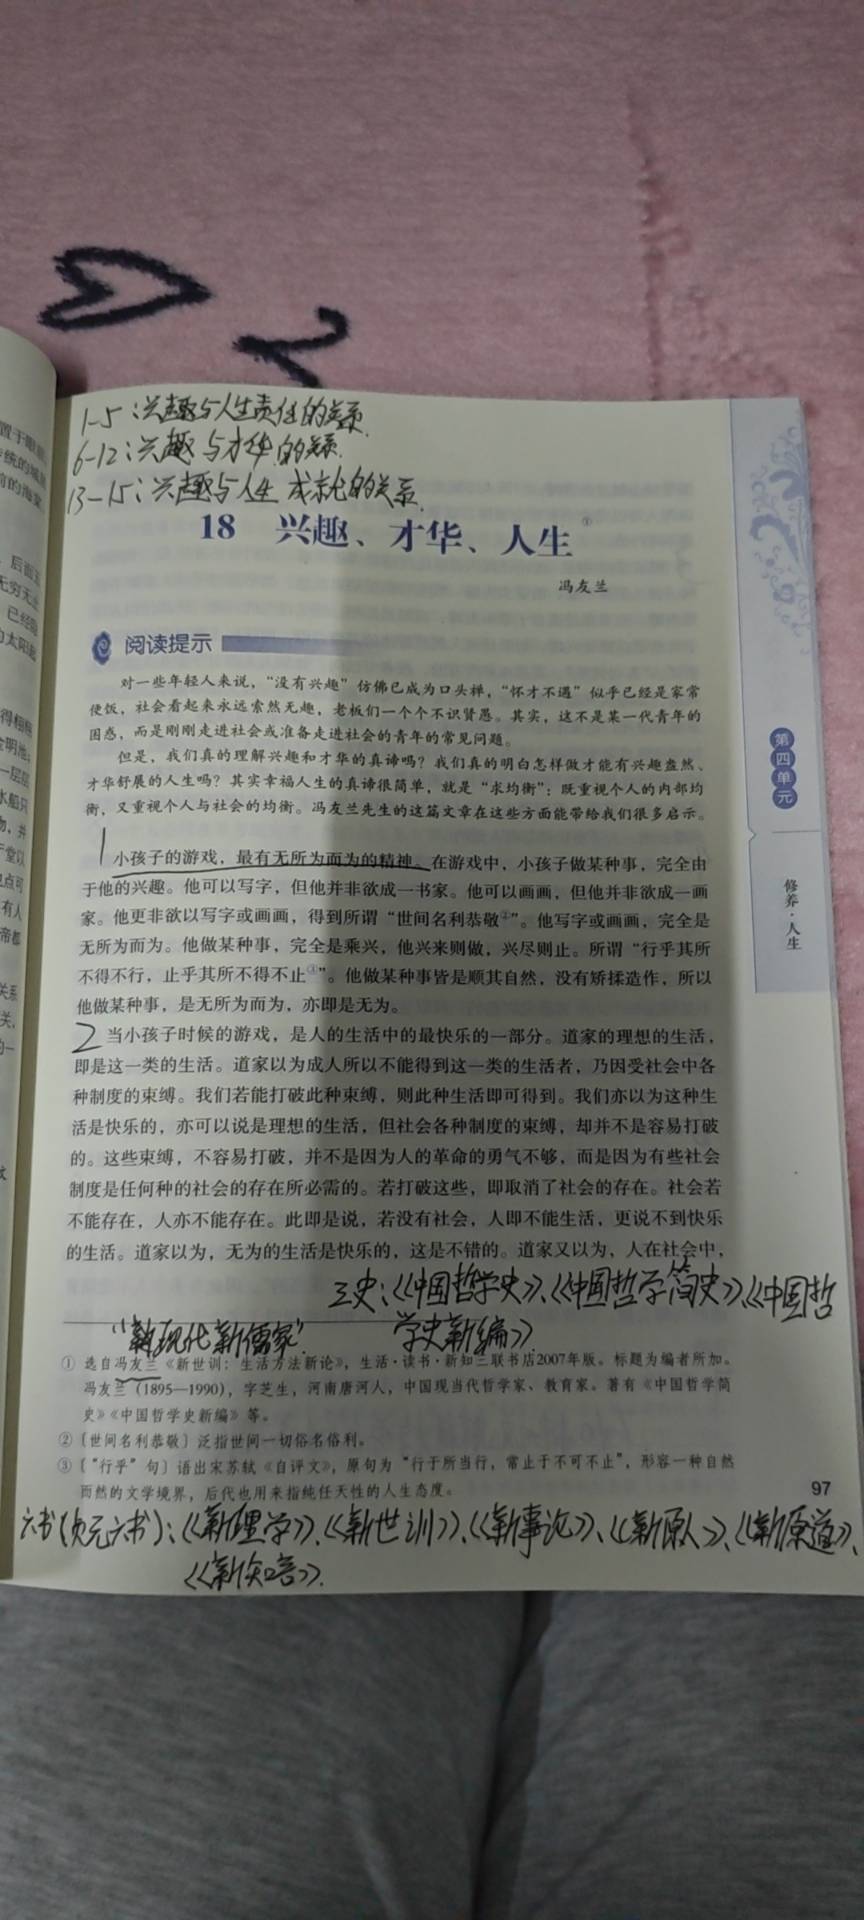 1-5：兴趣与人生责任的关系.
6-12：兴趣与才华的关系.
13-15：兴趣与人生成就的关系.
18 兴趣、才华、人生①
冯友兰
阅读提示
对一些年轻人来说，“没有兴趣”仿佛已成为口头禅，“怀才不遇”似乎已经是家常
便饭，社会看起来永远索然无趣，老板们一个个不识贤愚。其实，这不是某一代青年的
困惑，而是刚刚走进社会或准备走进社会的青年的常见问题。
但是，我们真的理解兴趣和才华的真谛吗？我们真的明白怎样做才能有兴趣盎然、
才华舒展的人生吗？其实幸福人生的真谛很简单，就是“求均衡”：既重视个人的内部均
衡，又重视个人与社会的均衡。冯友兰先生的这篇文章在这些方面能带给我们很多启示。
1 小孩子的游戏，最有无所为而为的精神。在游戏中，小孩子做某种事，完全由
于他的兴趣。他可以写字，但他并非欲成一书家。他可以画画，但他并非欲成一画
家。他更非欲以写字或画画，得到所谓“世间名利恭敬②”。他写字或画画，完全是
无所为而为。他做某种事，完全是乘兴，他兴来则做，兴尽则止。所谓“行乎其所
不得不行，止乎其所不得不止③”。他做某种事皆是顺其自然，没有矫揉造作，所以
他做某种事，是无所为而为，亦即是无为。
2 当小孩子时候的游戏，是人的生活中的最快乐的一部分。道家的理想的生活，
即是这一类的生活。道家以为成人所以不能得到这一类的生活者，乃因受社会中各
种制度的束缚。我们若能打破此种束缚，则此种生活即可得到。我们亦以为这种生
活是快乐的，亦可以说是理想的生活，但社会各种制度的束缚，却并不是容易打破
的。这些束缚，不容易打破，并不是因为人的革命的勇气不够，而是因为有些社会
制度是任何种的社会的存在所必需的。若打破这些，即取消了社会的存在。社会若
不能存在，人亦不能存在。此即是说，若没有社会，人即不能生活，更说不到快乐
的生活。道家以为，无为的生活是快乐的，这是不错的。道家又以为，人在社会中，
三史：《中国哲学史》、《中国哲学简史》、《中国哲
学史新编》.
“现代新儒家”.
① 选自冯友兰《新世训：生活方法新论》，生活·读书·新知三联书店2007年版。标题为编者所加。
冯友兰（1895—1990），字芝生，河南唐河人，中国现当代哲学家、教育家。著有《中国哲学简
史》《中国哲学史新编》等。
②〔世间名利恭敬〕泛指世间一切俗名俗利。
③〔“行乎”句〕语出宋苏轼《自评文》，原句为“行于所当行，常止于不可不止”，形容一种自然
而然的文学境界，后代也用来指纯任天性的人生态度。
97
六书(贞元六书)：《新理学》、《新世训》、《新事论》、《新原人》、《新原道》、
《新知言》.
第四单元
修养·人生